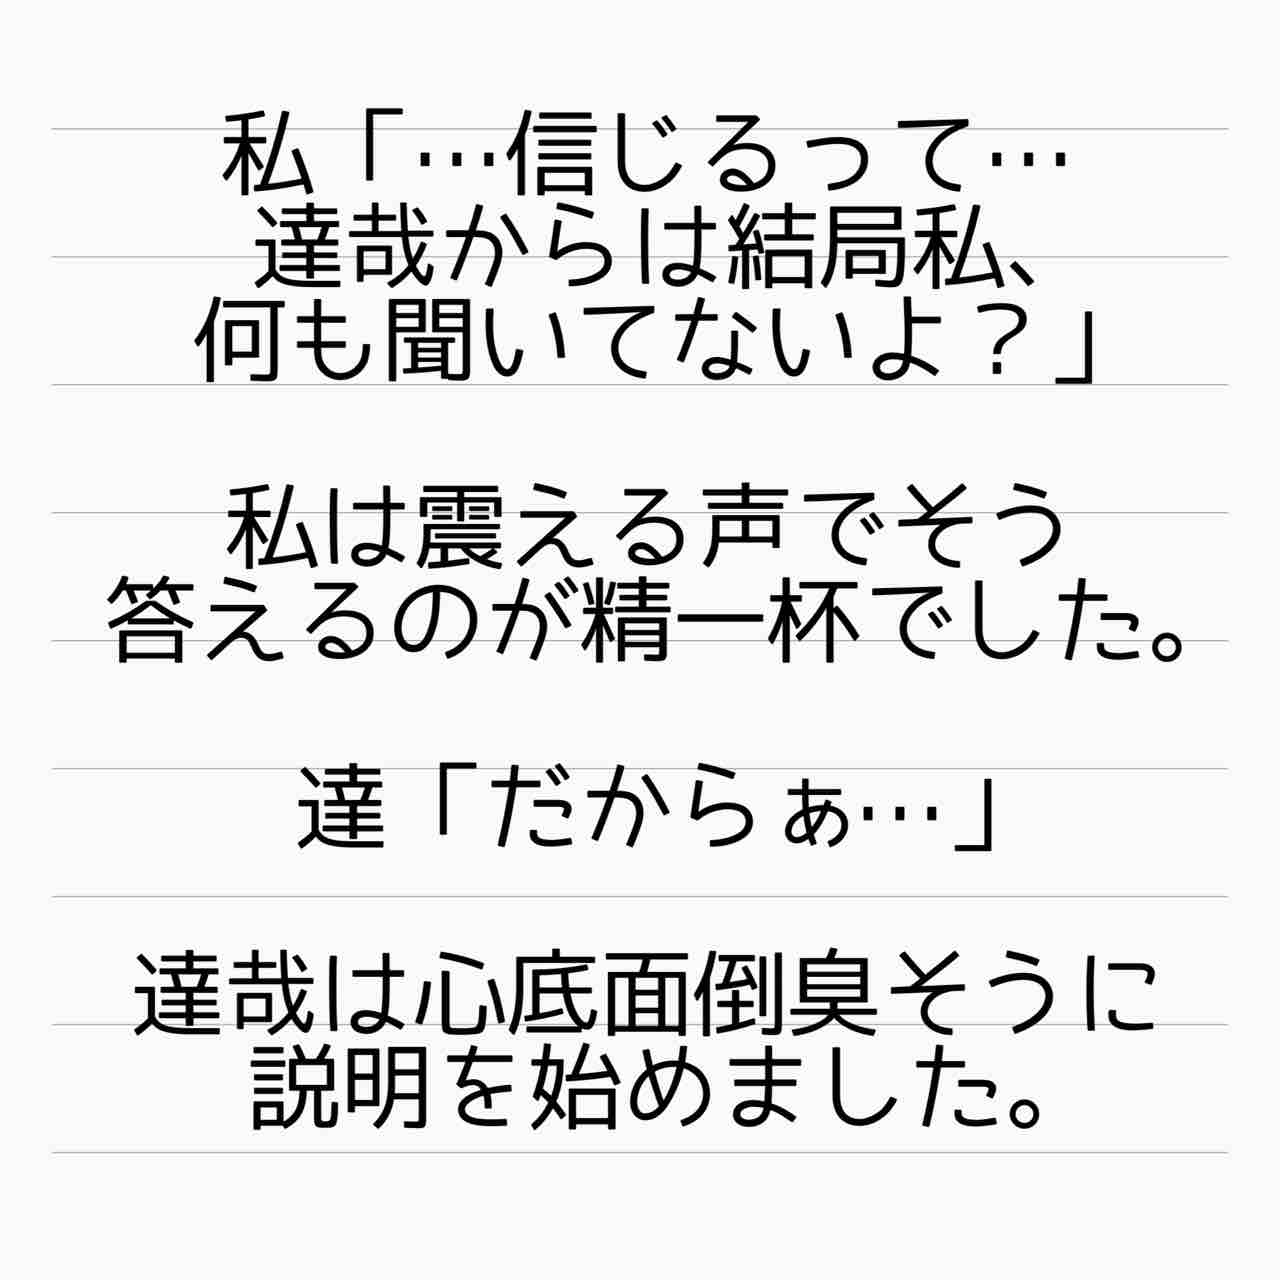 私「…信じるって…
達哉からは結局私、
何も聞いてないよ？」
私は震える声でそう
答えるのが精一杯でした。
達「だからぁ…」
達哉は心底面倒臭そうに
説明を始めました。